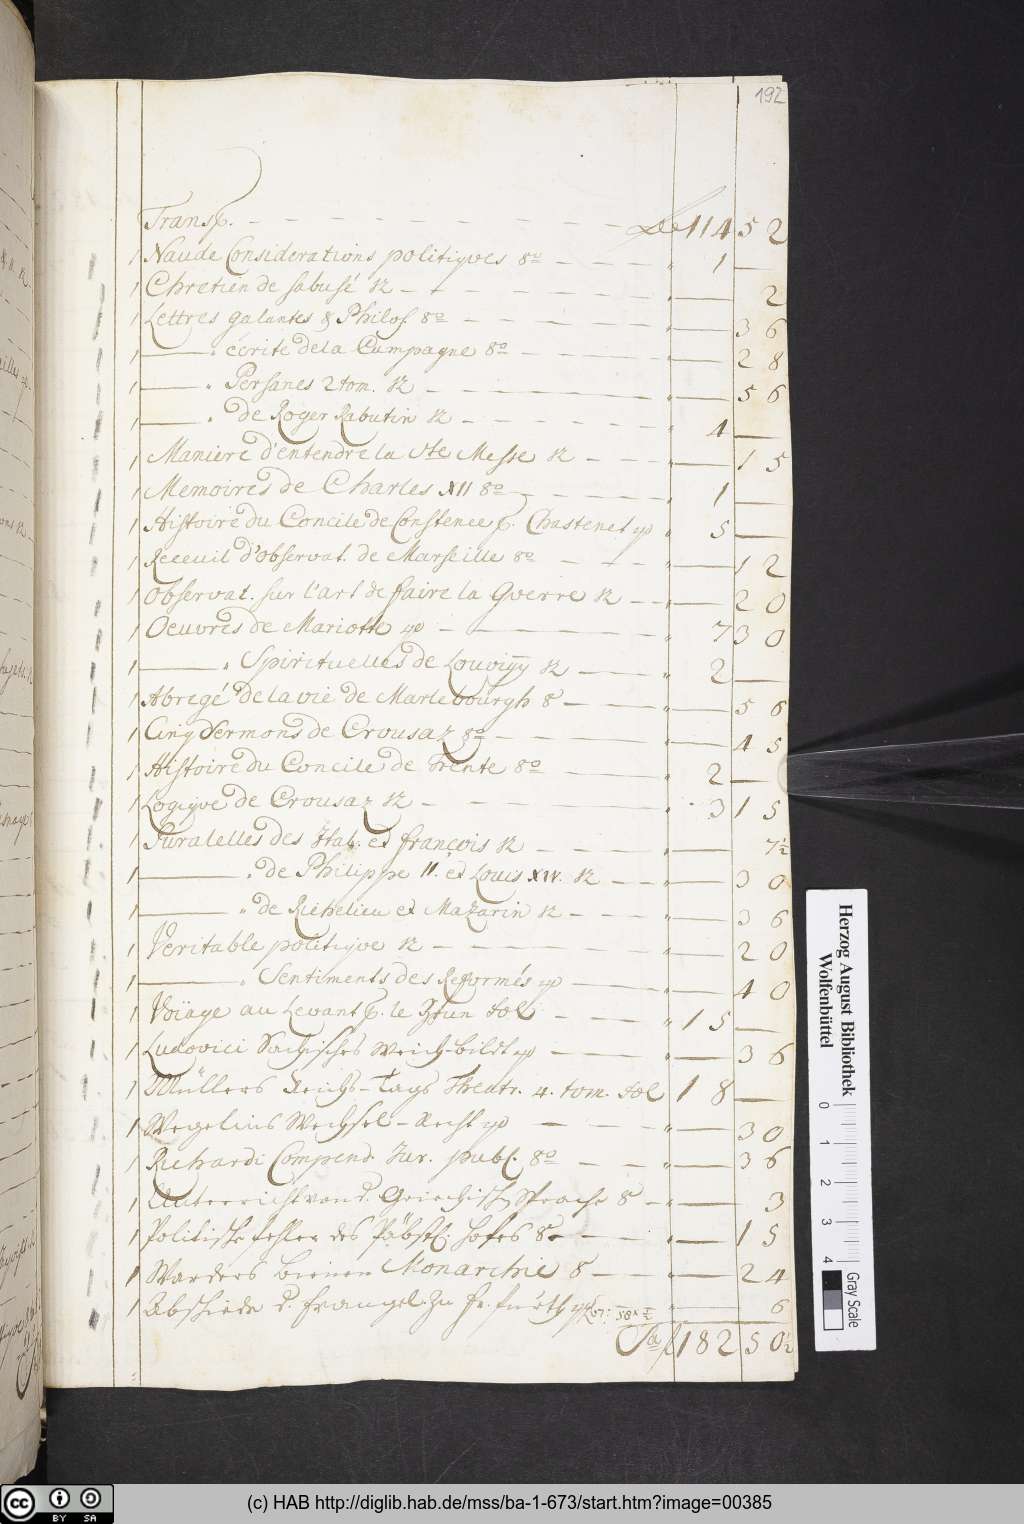 192
Transp. - - - - - - - - - 114 52
1 Naudé Considerations politiqves 8vo - - - " 1 —
1 Chretien desabusé 12 - - - - - - " — 2
1 Lettres galantes & Philos. 8vo - - - - " — 36
1 — " écrite de la Campagne 8o - - - - " — 28
1 — " Persanes 2 tom. 12 - - - - - " — 56
1 — " de Roger Rabutin 12 - - - - - " 4 —
1 Maniere d'entendre la Ste Messe 12 - - - " — 15
1 Memoires de Charles XII 8o - - - - " 1 —
1 Histoire du Concile de Constence p. Chastenet 4o " 5 —
1 Receuil d'observat. de Marseille 8o - - - " — 12
1 Observat. sur l'art de faire la Gverre 12 - - " — 20
1 Oeuvres de Mariotte 4o - - - - - " 7 30
1 — " Spirituelles de Louvigy 12 — " 2 —
1 Abregé de la vie de Marlebourgh 8 - - - " — 56
1 Cinq Sermons de Crousaz 8o - - - - " — 45
1 Histoire du Concile de Trente 8o - - - " 2 —
1 Logiqve de Crousaz 12 - - - - - " 3 15
1 Paralelles des Ital. et françois 12 - - - " — 7½
1 — " de Philippe II. et Louis XIV. 12 - - " — 30
1 — " de Richelieu et Mazarin 12 - - - " — 36
1 Veritable politiqve 12 - - - - - " — 20
1 — " Sentiments des Reformés 4o - - - " — 40
1 Voïage au Levant p. le Brun fol - - - " 15 —
1 Ludovici Sächsisches Weich-bildt 4o - - - " — 36
1 Müllers Reichs-Tags Theatr. 4. tom. fol 18 —
1 Wegelins Wechsel-Recht 4o - - - - " — 30
1 Richardi Compend. Jur. publ. 8o - - - " — 36
1 Unterricht von d. Griechisch. Sprache 8 - " — 3
1 Politische fehler des Päbstl. hofes 8o - - - " — 15
1 Warders bienen Monarchie 8 - - - " — 24
1 Abschiede d. Evangel. zu fürth " — 6
Sa f 182 50½
Herzog August Bibliothek
Wolfenbüttel
0 1 2 3 4
Gray Scale
cc BY SA
(c) HAB http://diglib.hab.de/mss/ba-1-673/start.htm?image=00385